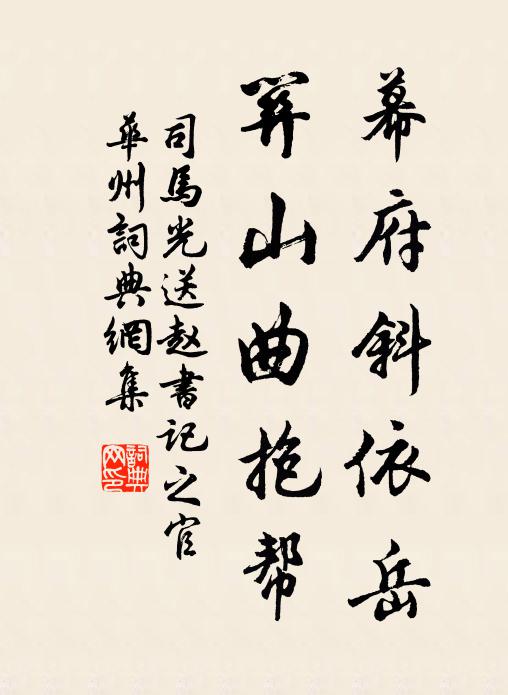 幕府斜依岳
関山曲抱帮
司馬光送赵書記之官
華州詞典網集
詞典
网印